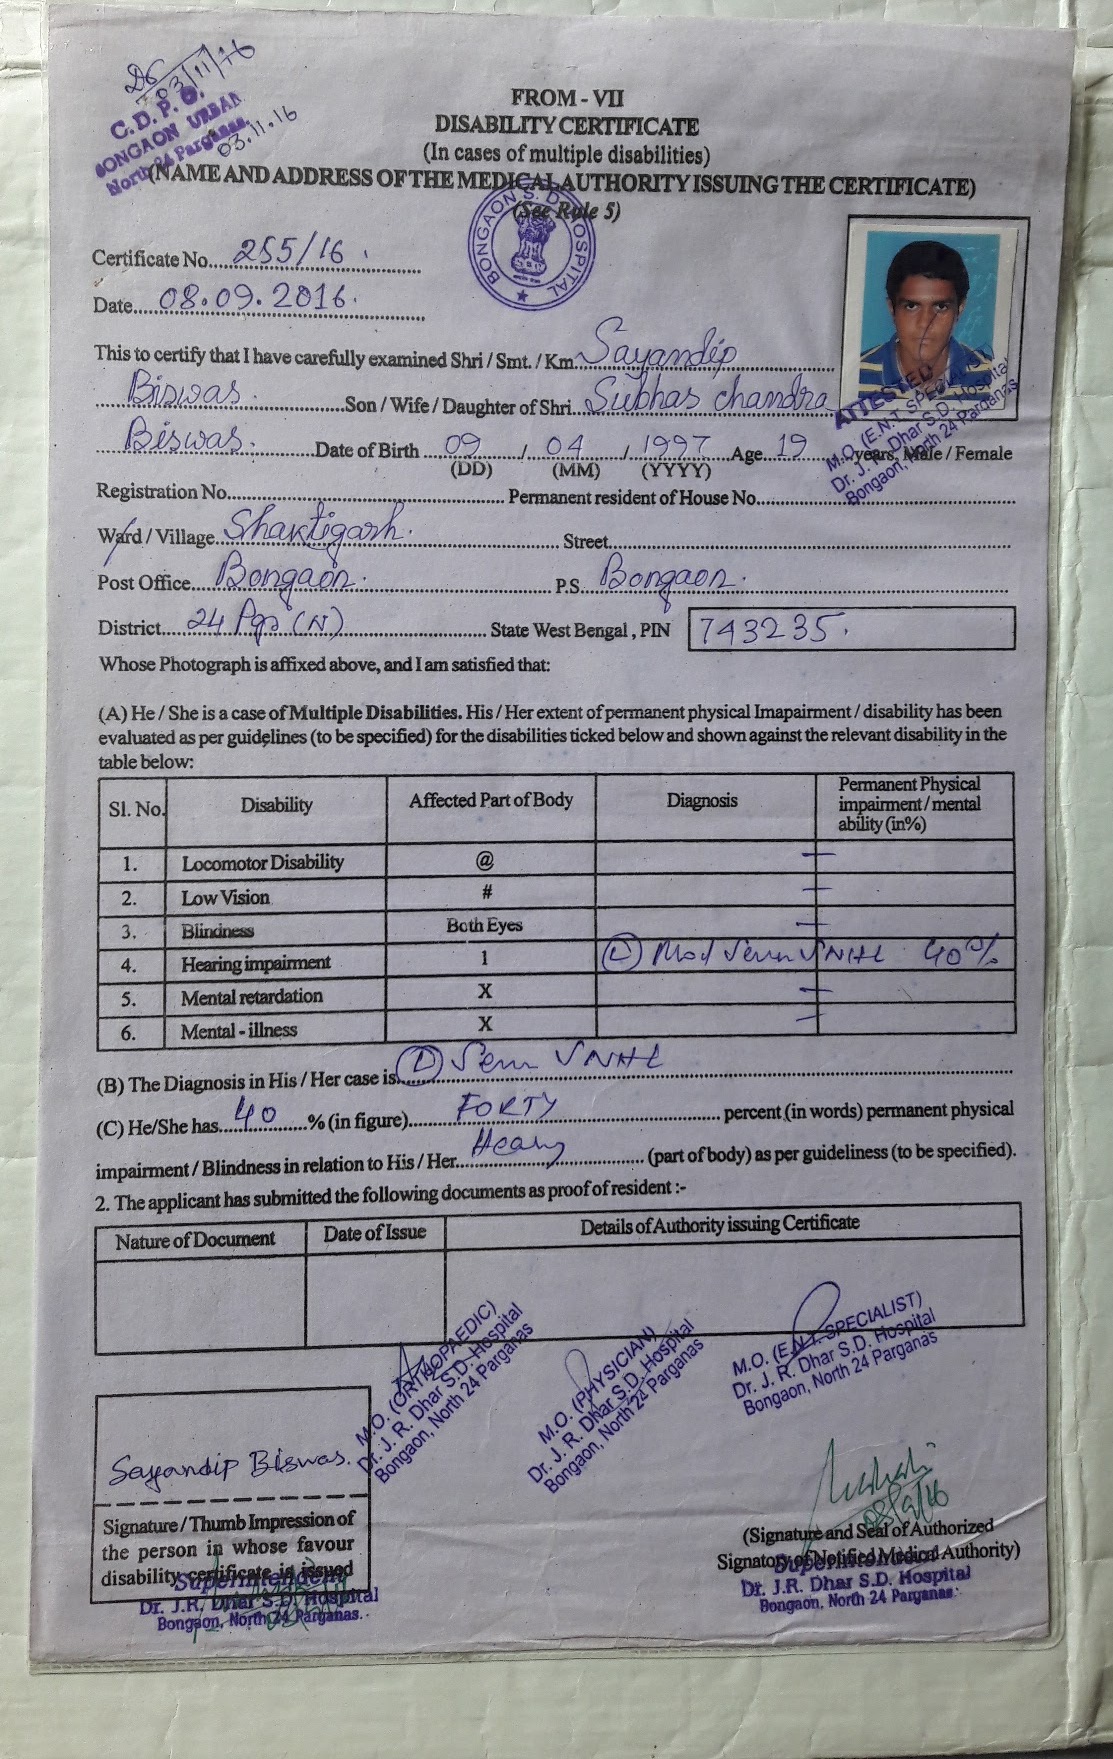 03/11/16
C. D. P. O.
BONGAON URBAN
North 24 Parganas.
03.11.16
FROM - VII
DISABILITY CERTIFICATE
(In cases of multiple disabilities)
(NAME AND ADDRESS OF THE MEDICAL AUTHORITY ISSUING THE CERTIFICATE)
(See Rule 5)
BONGAON S. D. HOSPITAL
Certificate No. 255/16.
Date 08.09.2016.
This to certify that I have carefully examined Shri / Smt. / Km Sayandip
Biswas. Son / Wife / Daughter of Shri. Subhas chandra
Biswas. Date of Birth 09 / 04 / 1997 Age 19 years, Male / Female
(DD) (MM) (YYYY)
ATTESTED
M.O. (E.N.T. SPECIALIST)
Dr. J. R. Dhar S.D. Hospital
Bongaon, North 24 Parganas
Registration No. Permanent resident of House No.
Ward / Village Shaktigarh. Street
Post Office Bongaon. P.S. Bongaon.
District 24 Pgs (N) State West Bengal , PIN 743235.
Whose Photograph is affixed above, and I am satisfied that:
(A) He / She is a case of Multiple Disabilities. His / Her extent of permanent physical Imapairment / disability has been
evaluated as per guidelines (to be specified) for the disabilities ticked below and shown against the relevant disability in the
table below:
Sl. No. Disability Affected Part of Body Diagnosis Permanent Physical impairment / mental ability (in%)
1. Locomotor Disability @ —
2. Low Vision # —
3. Blindness Both Eyes —
4. Hearing impairment 1 (L) Mod SNHL 40%
5. Mental retardation X —
6. Mental - illness X —
(B) The Diagnosis in His / Her case is. (L) SNHL
(C) He/She has 40 % (in figure) FORTY percent (in words) permanent physical
impairment / Blindness in relation to His / Her (part of body) as per guideliness (to be specified).
2. The applicant has submitted the following documents as proof of resident :-
Nature of Document Date of Issue Details of Authority issuing Certificate
M.O. (ORTHOPAEDIC)
Dr. J. R. Dhar S.D. Hospital
Bongaon, North 24 Parganas
M.O. (PHYSICIAN)
Dr. J. R. Dhar S.D. Hospital
Bongaon, North 24 Parganas
M.O. (E.N.T. SPECIALIST)
Dr. J. R. Dhar S.D. Hospital
Bongaon, North 24 Parganas
Sayandip Biswas.
Signature / Thumb Impression of
the person in whose favour
disability certificate is issued
Superintendent
Dr. J.R. Dhar S.D. Hospital
Bongaon, North 24 Parganas.
08/9/16
(Signature and Seal of Authorized
Signatory of Notified Medical Authority)
Superintendent
Dr. J.R. Dhar S.D. Hospital
Bongaon, North 24 Parganas.